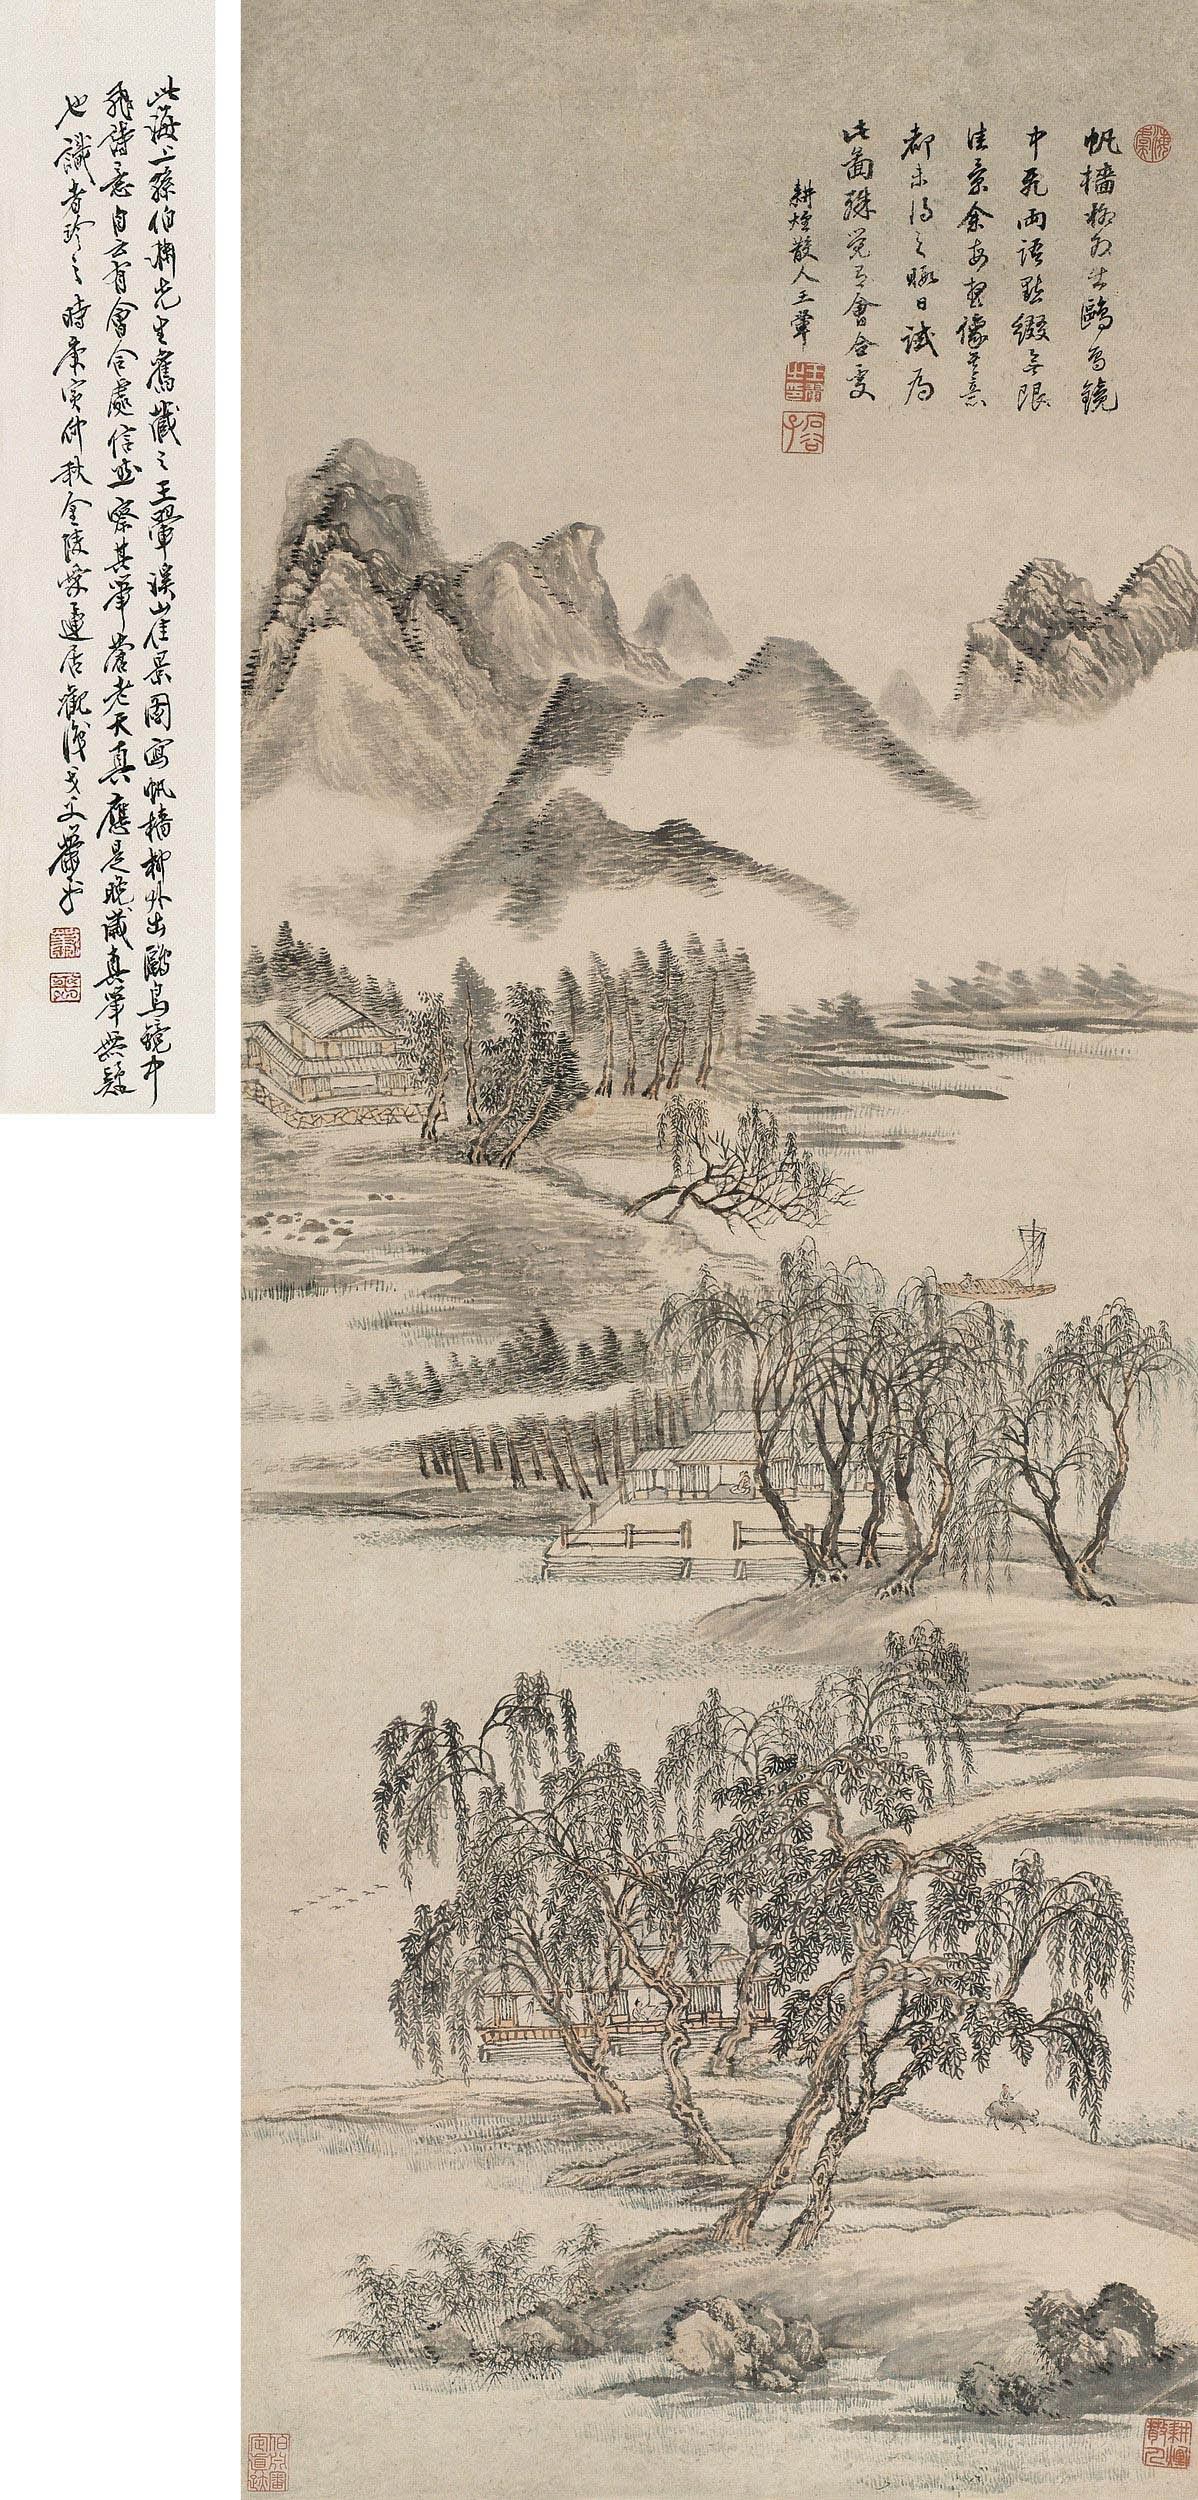 帆檣柳外出鷗鳥鏡
中飛兩語點綴無限
佳景余每想像其意
都未得之暇日試爲
此圖殊覺有會合處
耕煙散人王翬
王翬
之印
石谷
子
此海上孫伯淵先生舊藏之王翬溪山佳景圖寫帆檣柳外出鷗鳥鏡中
飛詩意自云有會合處信然察其筆蒼老天真應是晚歲真筆無疑
也識者珍之時庚寅仲秋金陵愛蓮居觀後戈父蕭平
耕煙
散人